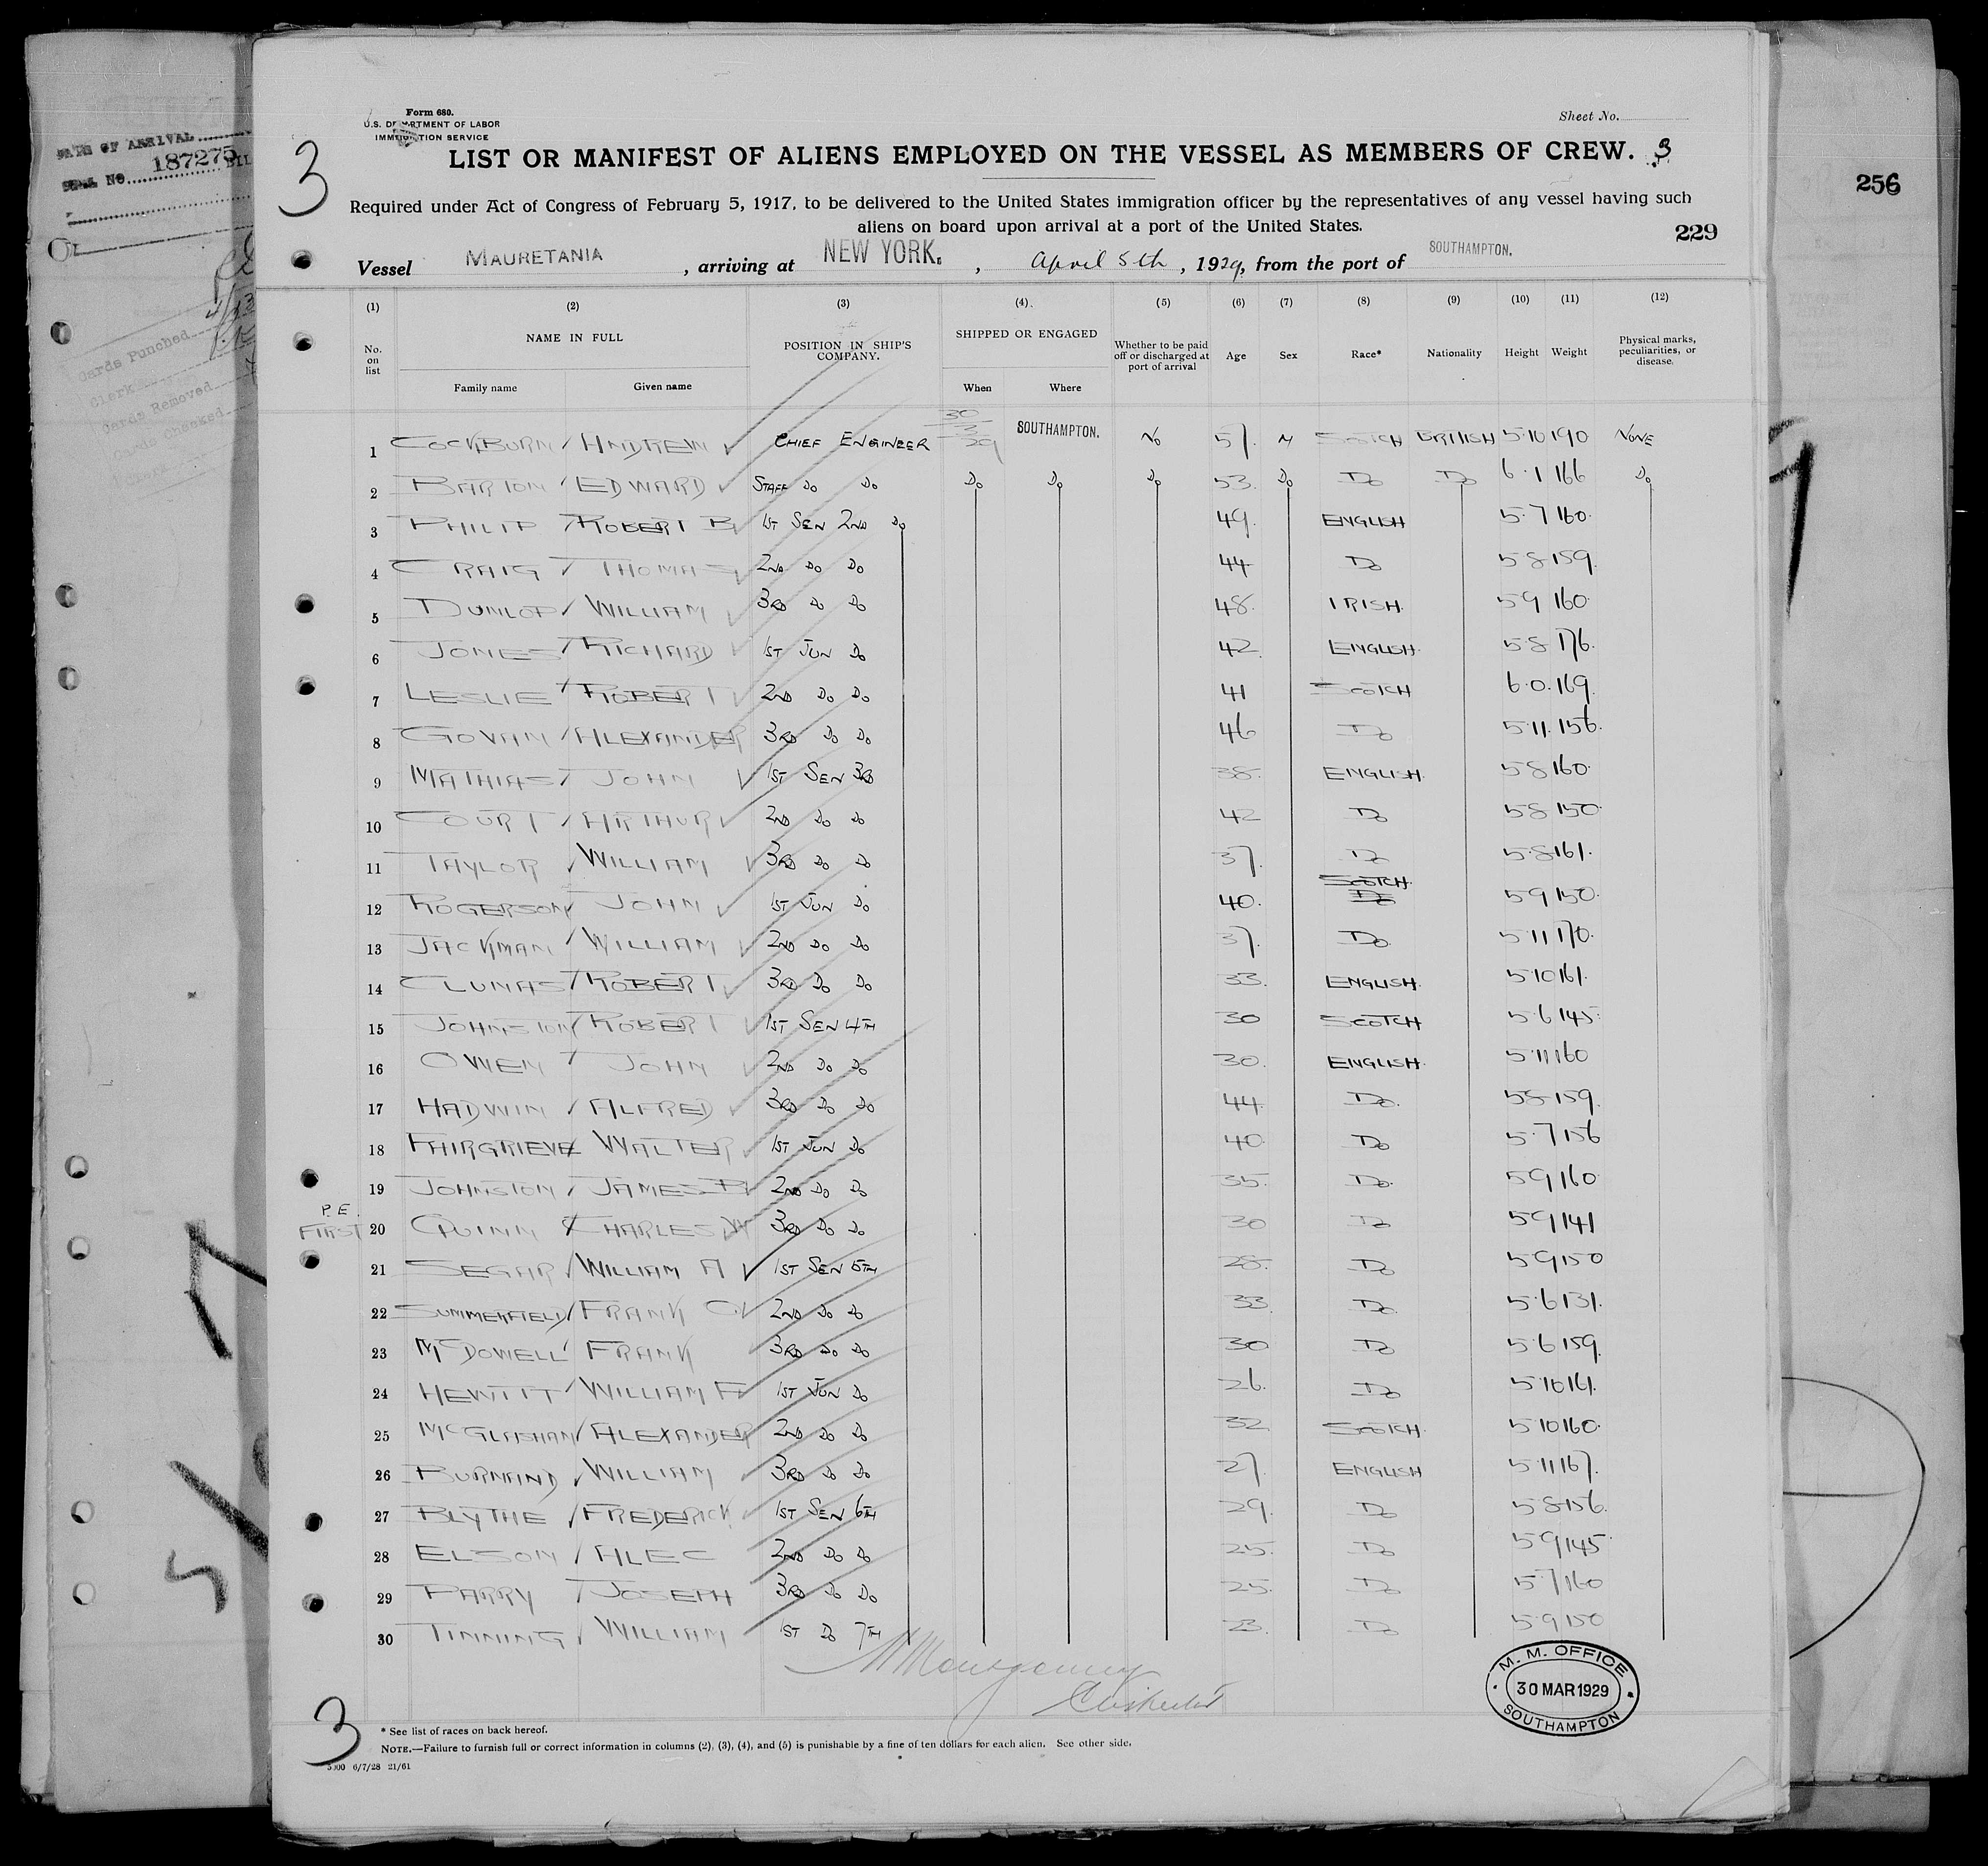 DATE OF ARRIVAL
SERIAL No. 187275
Cards Punched
Clerk
Cards Removed
Cards Checked
256
Form 680.
U.S. DEPARTMENT OF LABOR
IMMIGRATION SERVICE
Sheet No.
3
LIST OR MANIFEST OF ALIENS EMPLOYED ON THE VESSEL AS MEMBERS OF CREW. 3
Required under Act of Congress of February 5, 1917, to be delivered to the United States immigration officer by the representatives of any vessel having such
aliens on board upon arrival at a port of the United States.
229
Vessel MAURETANIA, arriving at NEW YORK., April 5th, 1929, from the port of SOUTHAMPTON.
(1) (2) (3) (4) (5) (6) (7) (8) (9) (10) (11) (12)
No. on list NAME IN FULL POSITION IN SHIP'S COMPANY. SHIPPED OR ENGAGED Whether to be paid off or discharged at port of arrival Age Sex Race* Nationality Height Weight Physical marks, peculiarities, or disease.
Family name Given name When Where
1 COCKBURN ANDREW CHIEF ENGINEER 30/3/29 SOUTHAMPTON. NO 57. M SCOTCH BRITISH 5·10 190 NONE
2 BARTON EDWARD STAFF DO DO DO DO DO 53. DO DO DO 6·1 166 DO
3 PHILIP ROBERT B 1ST SEN 2ND DO 49. ENGLISH 5·7 160.
4 CRAIG THOMAS 2ND DO DO 44 DO 5·8 159.
5 DUNLOP WILLIAM 3RD DO DO 48. IRISH. 5·9 160.
6 JONES RICHARD 1ST JUN DO 42. ENGLISH. 5·8 176.
7 LESLIE ROBERT 2ND DO DO 41 SCOTCH 6·0. 169.
8 GOVAN ALEXANDER 3RD DO DO 46 DO 5·11. 156.
9 MATHIAS JOHN 1ST SEN 3RD 38. ENGLISH. 5·8 160.
10 COURT ARTHUR 2ND DO DO 42 DO 5·8 150.
11 TAYLOR WILLIAM 3RD DO DO 37. DO 5·8 161.
12 ROGERSON JOHN 1ST JUN DO 40. SCOTCH. DO 5·9 150.
13 JACKMAN WILLIAM 2ND DO DO 37. DO. 5·11 170.
14 CLUNAS ROBERT 3RD DO DO 33. ENGLISH. 5·10 161.
15 JOHNSTON ROBERT 1ST SEN 4TH 30 SCOTCH 5·6 145.
16 OWEN JOHN 2ND DO DO 30. ENGLISH. 5·11 160
17 HADWIN ALFRED 3RD DO DO 44. DO. 5·8 159.
18 FAIRGRIEVE WALTER 1ST JUN DO 40. DO 5·7 156
19 JOHNSTON JAMES B 2ND DO DO 35. DO. 5·9 160.
P.E. FIRST 20 QUINN CHARLES W 3RD DO DO 30 DO 5·9 141
21 SEGAR WILLIAM A 1ST SEN 5TH 28. DO 5·9 150
22 SUMMERFIELD FRANK O 2ND DO DO 33. DO. 5·6 131.
23 McDOWELL FRANK 3RD DO DO 30 DO 5·6 159.
24 HEWITT WILLIAM F 1ST JUN DO 26. DO 5·10 161.
25 McGLASHAN ALEXANDER 2ND DO DO 32 SCOTCH. 5·10 160.
26 BURNAND WILLIAM 3RD DO DO 27. ENGLISH 5·11 167.
27 BLYTHE FREDERICK 1ST SEN 6TH 29. DO 5·8 156.
28 ELSON ALEC 2ND DO DO 25. DO 5·9 145.
29 PARRY JOSEPH 3RD DO DO 25. DO 5·7 160
30 TINNING WILLIAM 1ST DO 7TH 23. DO 5·9 150
Montgomery
M. M. OFFICE
30 MAR 1929
SOUTHAMPTON
3
* See list of races on back hereof.
NOTE.—Failure to furnish full or correct information in columns (2), (3), (4), and (5) is punishable by a fine of ten dollars for each alien. See other side.
5000 6/7/28 21/61